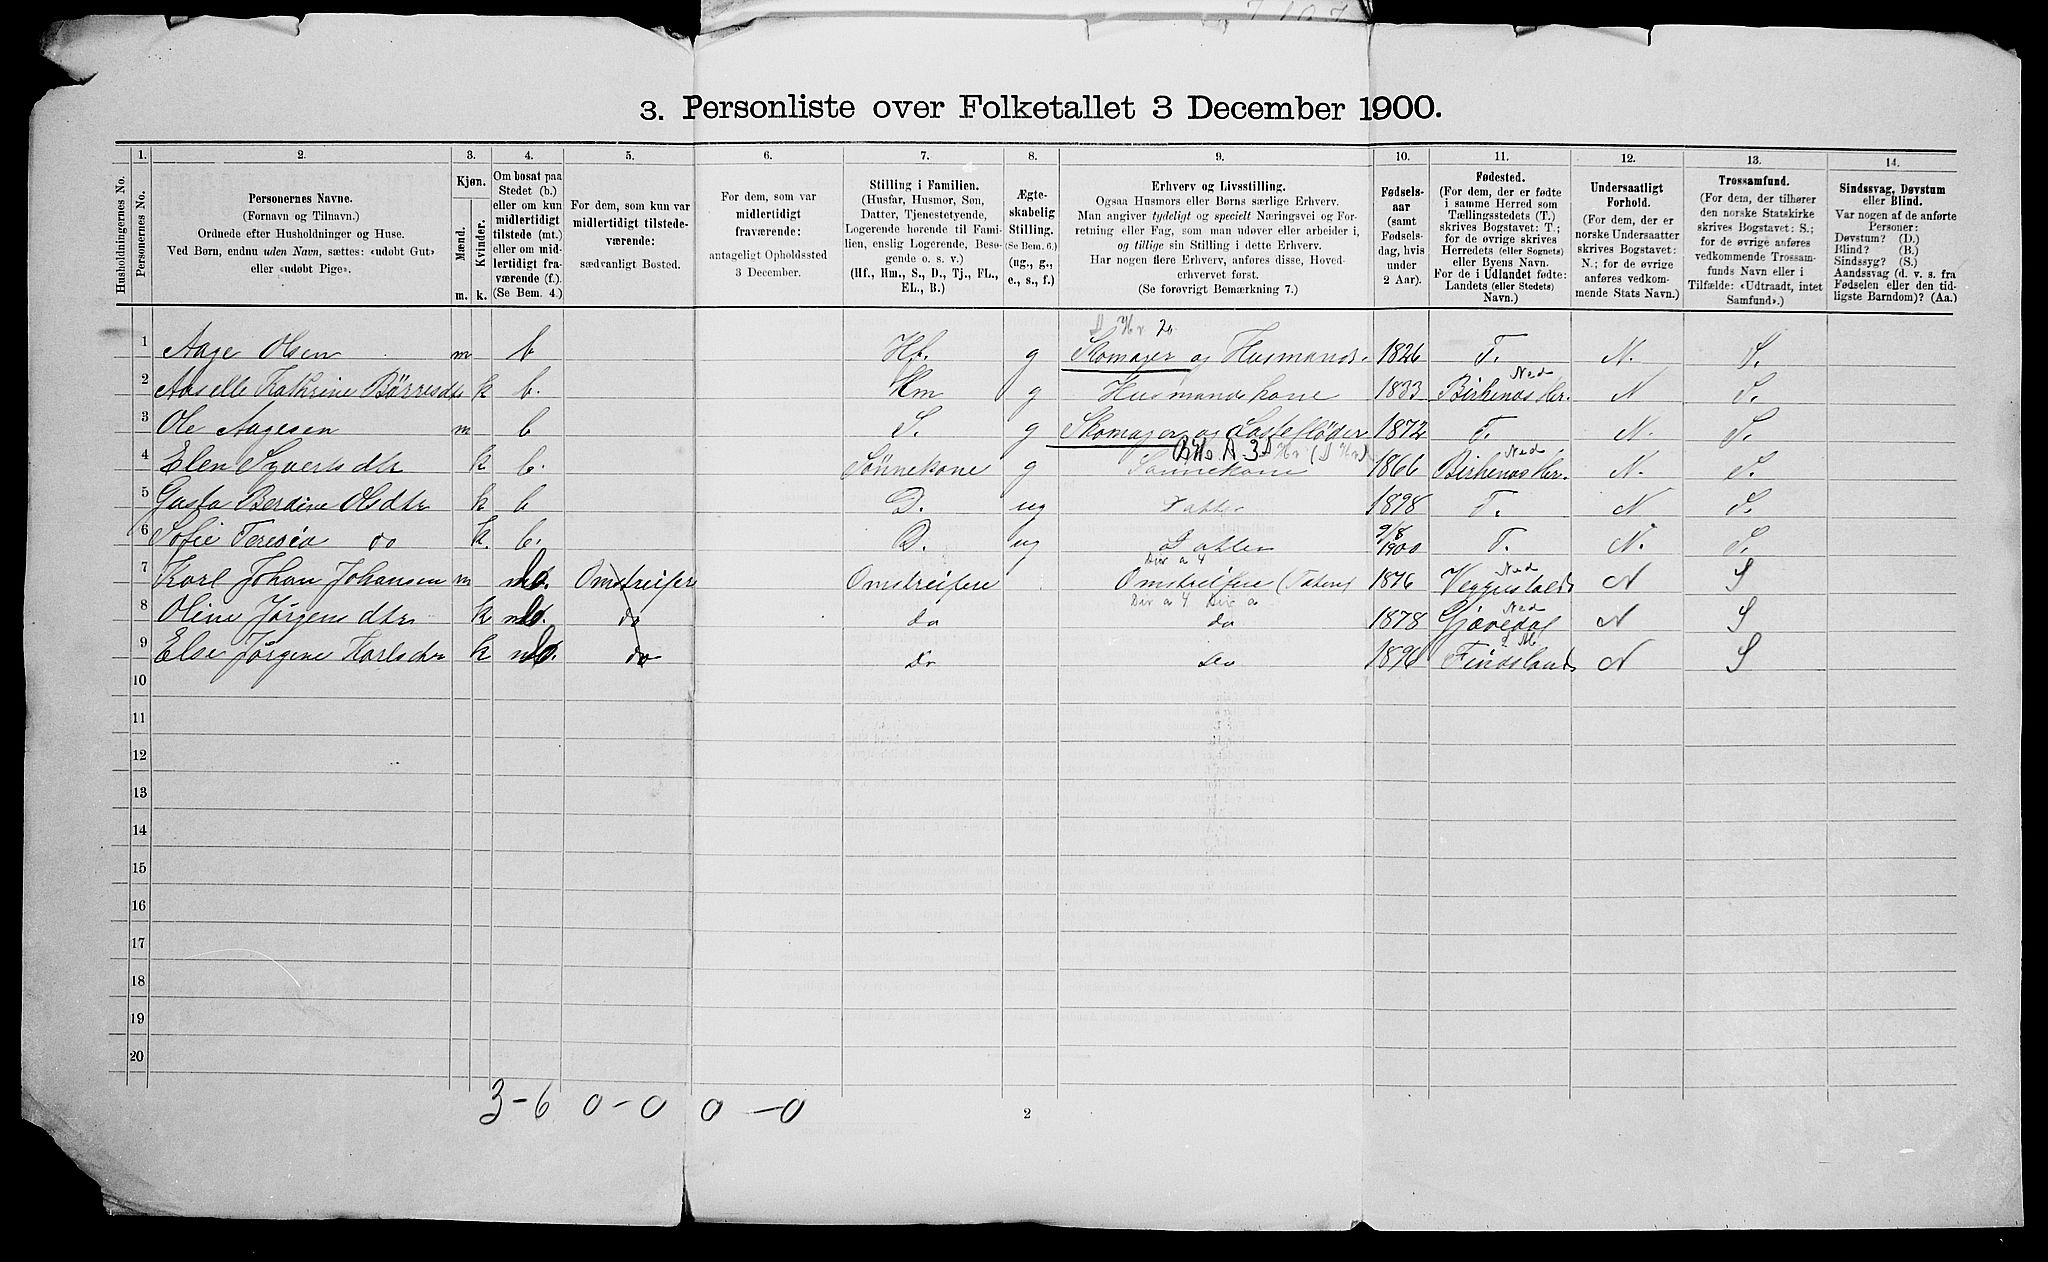 3. Personliste over Folketallet 3 December 1900.
Husholdningernes No.
1. Personernes No.
2. Personernes Navne. (Fornavn og Tilnavn.) Ordnede efter Husholdninger og Huse. Ved Børn, endnu uden Navn, sættes: «udøbt Gut» eller «udøbt Pige».
3. Kjøn. Mænd. m. Kvinder. k.
4. Om bosat paa Stedet (b.) eller om kun midlertidigt tilstede (mt.) eller om midlertidigt fraværende (f.). (Se Bem. 4.)
5. For dem, som kun var midlertidigt tilstedeværende: sædvanligt Bosted.
6. For dem, som var midlertidigt fraværende: antageligt Opholdssted 3 December.
7. Stilling i Familien. (Husfar, Husmor, Søn, Datter, Tjenestetyende, Logerende hørende til Familien, enslig Logerende, Besøgende o. s. v.) (Hf., Hm., S., D., Tj., FL., EL., B.)
8. Ægteskabelig Stilling. (Se Bem. 6.) (ug., g., e., s., f.)
9. Erhverv og Livsstilling. Ogsaa Husmors eller Børns særlige Erhverv. Man angiver tydeligt og specielt Næringsvei og Forretning eller Fag, som man udøver eller arbeider i, og tillige sin Stilling i dette Erhverv. Har nogen flere Erhverv, anføres disse, Hovederhvervet først. (Se forøvrigt Bemærkning 7.)
10. Fødselsaar (samt Fødselsdag, hvis under 2 Aar).
11. Fødested. (For dem, der er fødte i samme Herred som Tællingsstedets (T.) skrives Bogstavet: T.; for de øvrige skrives Herredets (eller Sognets) eller Byens Navn. For de i Udlandet fødte: Landets (eller Stedets) Navn.)
12. Undersaatligt Forhold. (For dem, der er norske Undersaatter skrives Bogstavet: N.; for de øvrige anføres vedkommende Stats Navn.)
13. Trossamfund. (For dem, der tilhører den norske Statskirke skrives Bogstavet: S.; for de øvrige anføres vedkommende Trossamfunds Navn eller i Tilfælde: «Udtraadt, intet Samfund».)
14. Sindssvag, Døvstum eller Blind. Var nogen af de anførte Personer: Døvstum? (D.) Blind? (B.) Sindssyg? (S.) Aandssvag (d. v. s. fra Fødselen eller den tidligste Barndom)? (Aa.)
1 Aage Olsen m b Hf. g Skomager og Husmand. 1826 T. N. S.
2 Kathrine Børresdtr k b. Hm g Husmandskone 1833 Birkenas Her. Ned N S.
3 Ole Aagesen m b S. g Skomager og Lostefløder 1872 T. N. S.
4 Elen Syvertsdtr k b. Sønnekone g Sønnekone 1866 Birkenas Her. Ned N. S.
5 Gusta Berdine Olsdtr k b D. ug Datter 1898 T. N S.
6 Sofie Teresia do k. b. D. ug Datter 9/8 1900 T. N. S.
7 Karl Johan Johansen m Omstreifer Omstreifere Omstreifere (Tater) 1876 Ned N S
8 Oline Jørgensdtr k do do do 1878 Gjøvedal Ned N S
9 Else Jørgine Karlsdtr k do do do 1896 Findsland N S
10
11
12
13
14
15
16
17
18
19
20
3-6 0-0 0-0
2